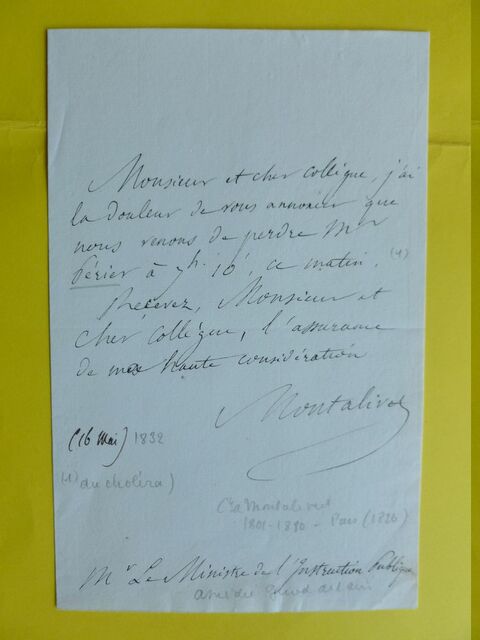 Monsieur et cher collègue, j'ai
la douleur de vous annoncer que
nous venons de perdre Mr
Périer à 7h. 10', ce matin. (1)
Recevez, Monsieur et
cher Collègue, l'assurance
de ma haute considération
Montalivet
(16 Mai) 1832
(1) du choléra)
Cte Montalivet
1801-1880 - Pair (1826)
Mr Le Ministre de l'Instruction Publique